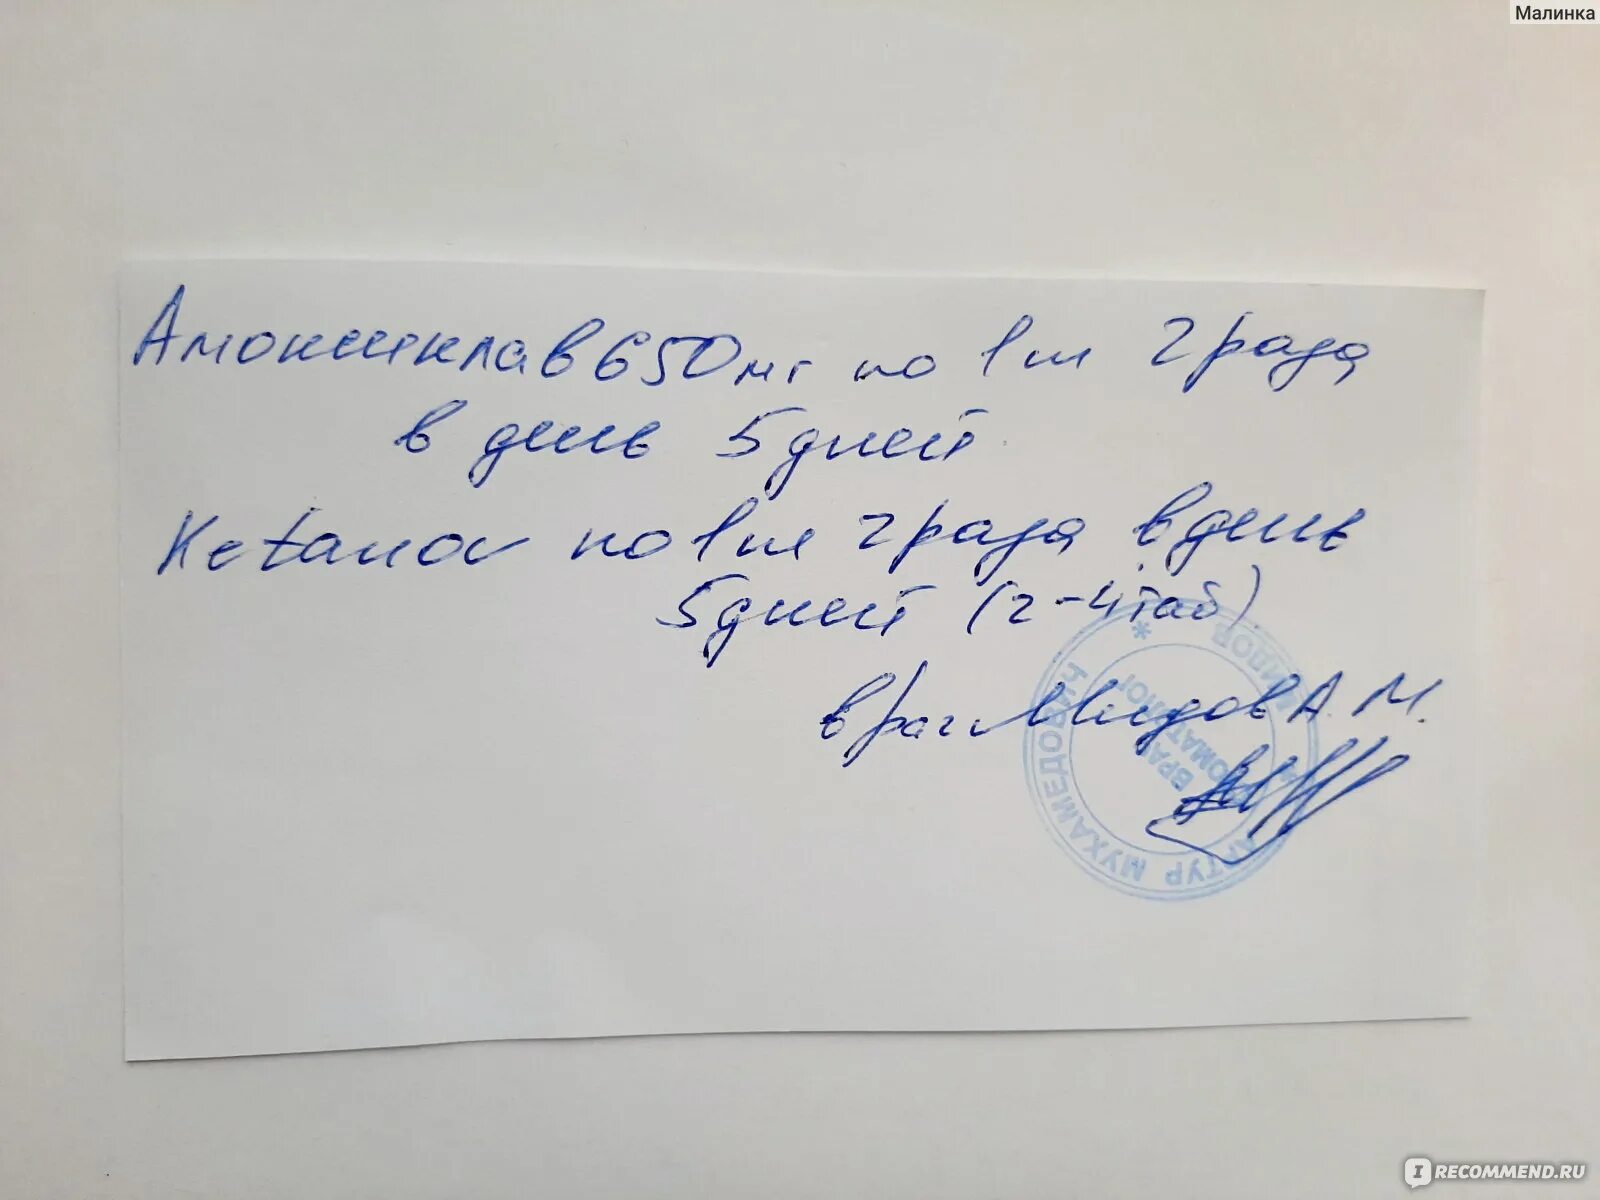 Малинка
Амоксиклав 650 мг по 1 т 2 раза
в день 5 дней
Ketanov по 1 т 2 раза в день
5 дней (2-4 таб)
врач Мидов А.М.
АРТУР МУХАМЕДОВИЧ МИДОВ
ВРАЧ
СТОМАТОЛОГ
IRECOMMEND.RU